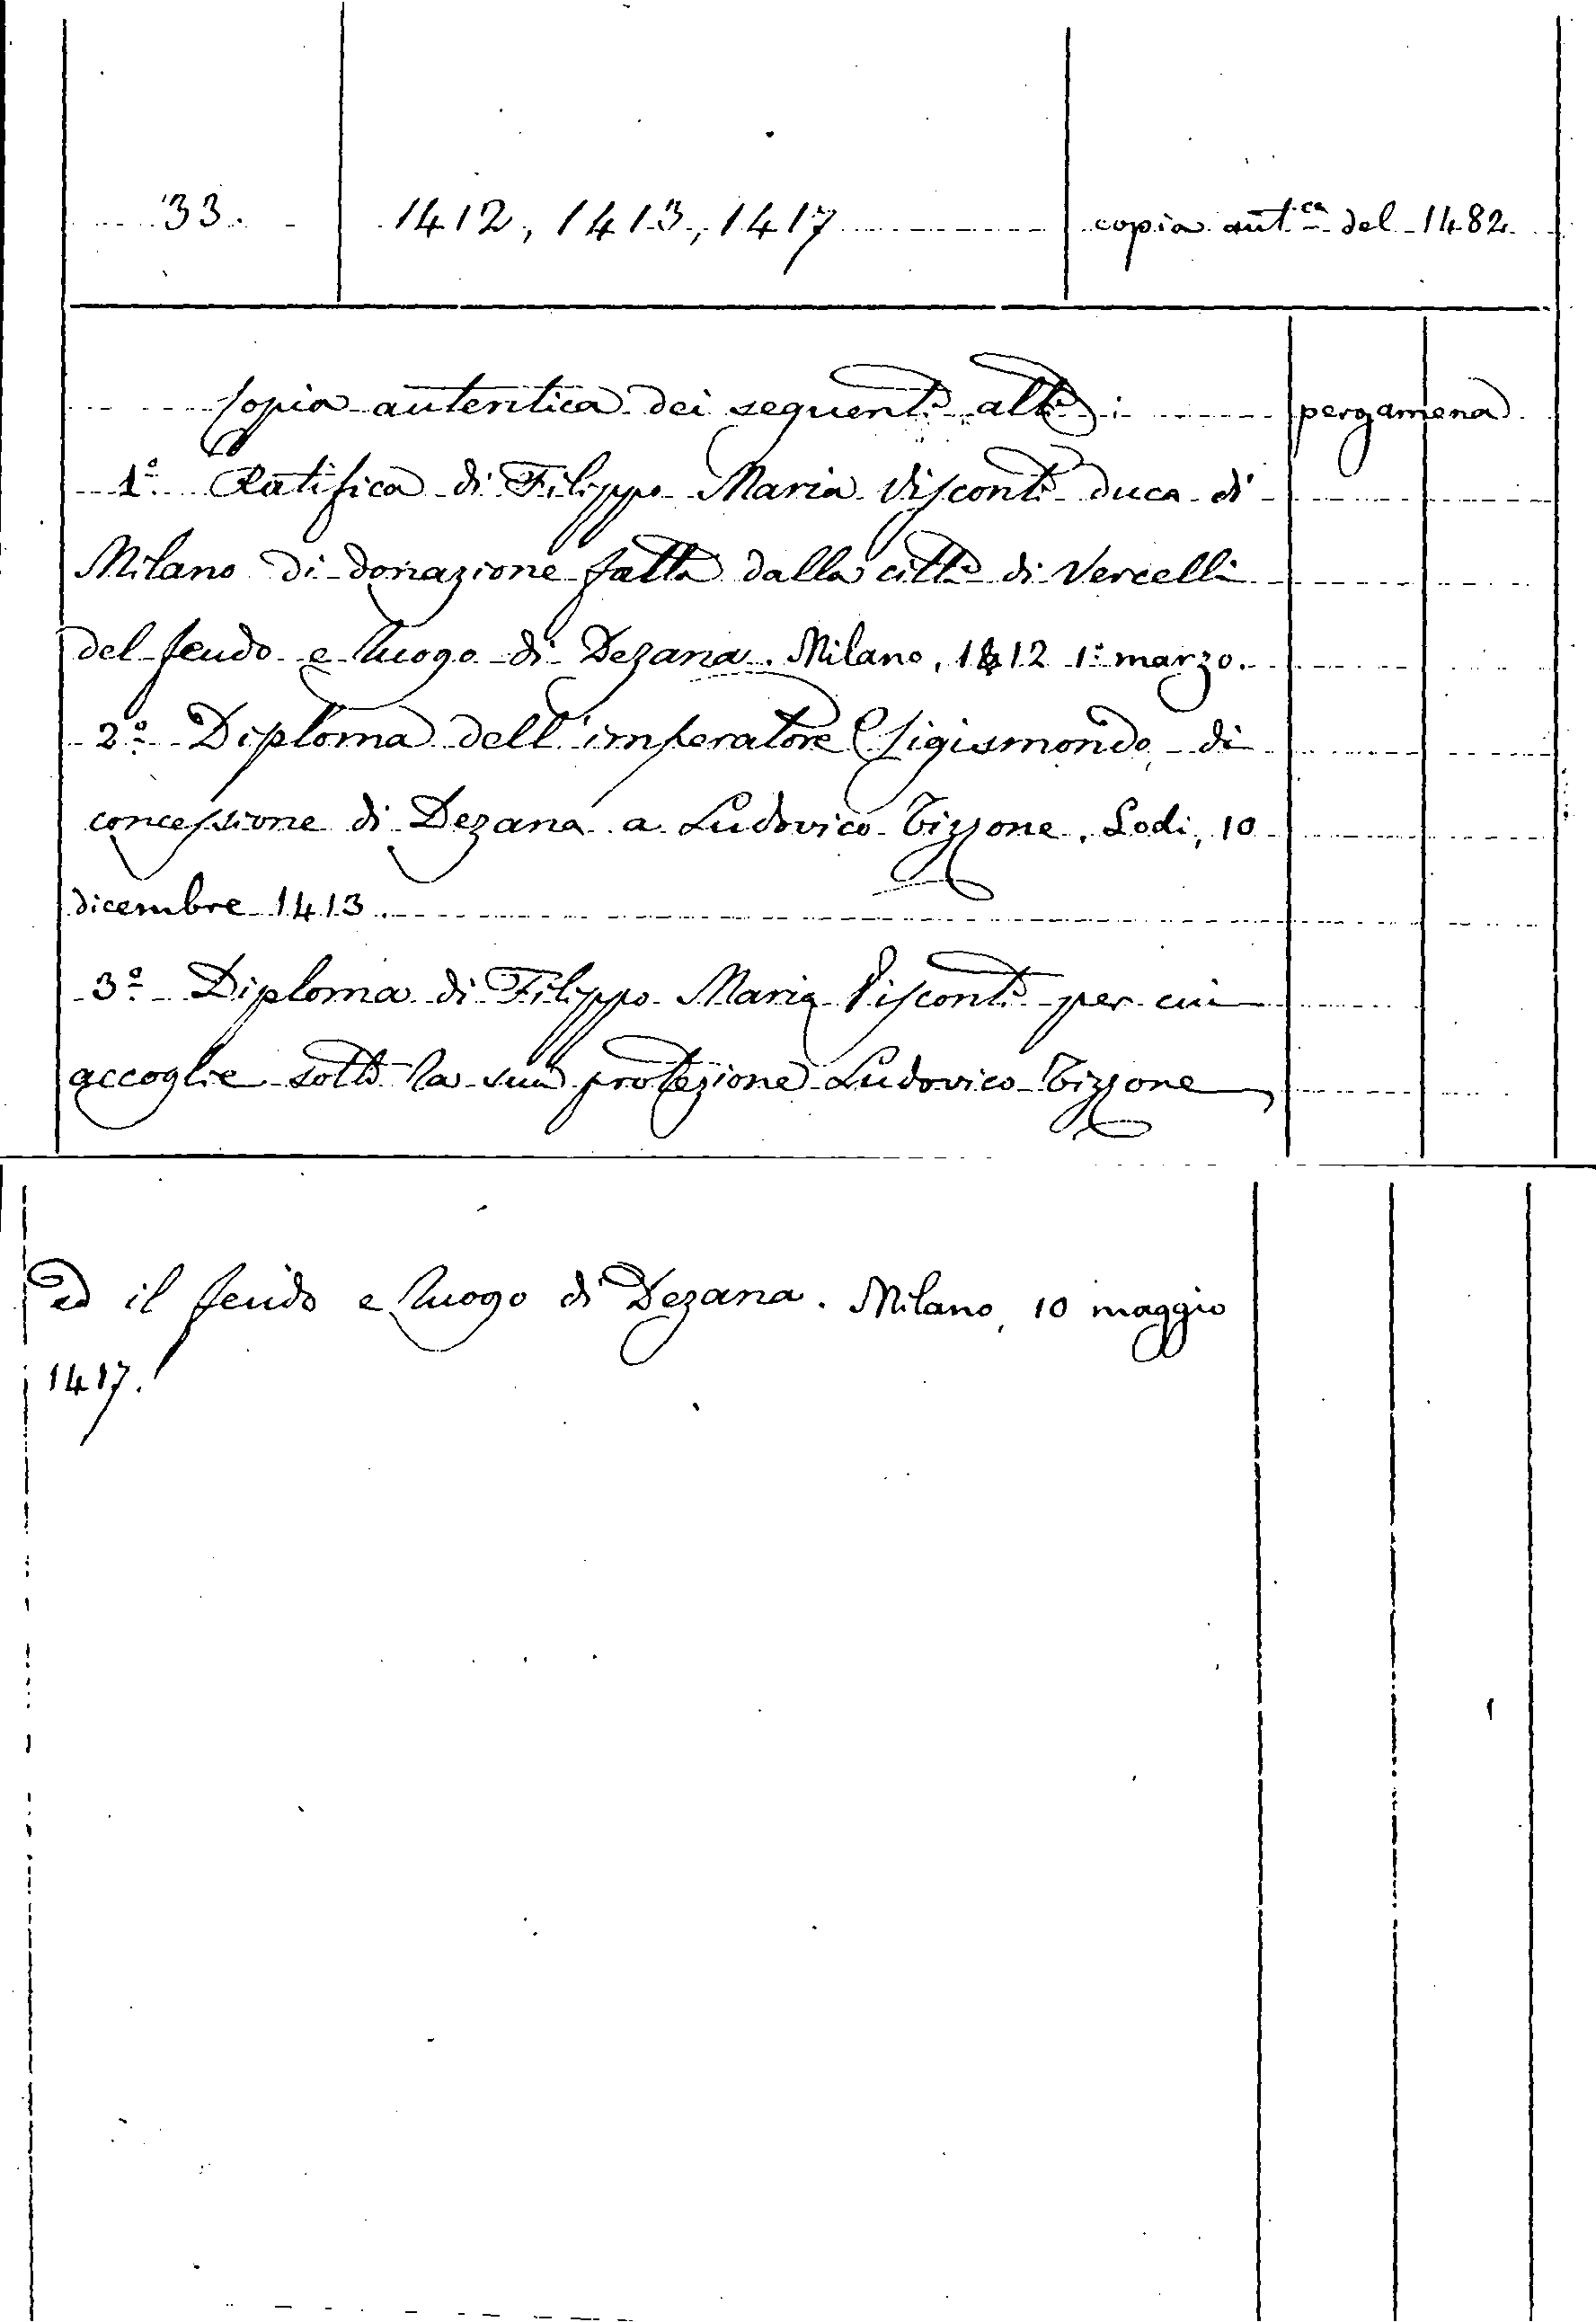 33. 1412, 1413, 1417 copia aut.ca del 1482.
Copia autentica dei seguenti atti: pergamena
1º. Ratifica di Filippo Maria Visconti duca di
Milano di donazione fatta dalla città di Vercelli
del feudo e luogo di Dezana. Milano, 1412 1º marzo.
2º. Diploma dell'imperatore Sigismondo, di
concessione di Dezana a Ludovico Tizzone. Lodi, 10
dicembre 1413.
3º. Diploma di Filippo Maria Visconti per cui
accoglie sotto la sua protezione Ludovico Tizzone
ed il feudo e luogo di Dezana. Milano, 10 maggio
1417.